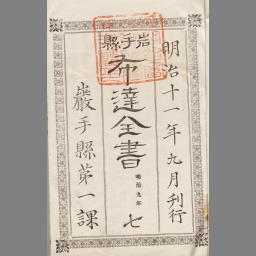 明治十一年九月刊行
岩手縣
布達全書
明治九年 七
巖手縣第一課